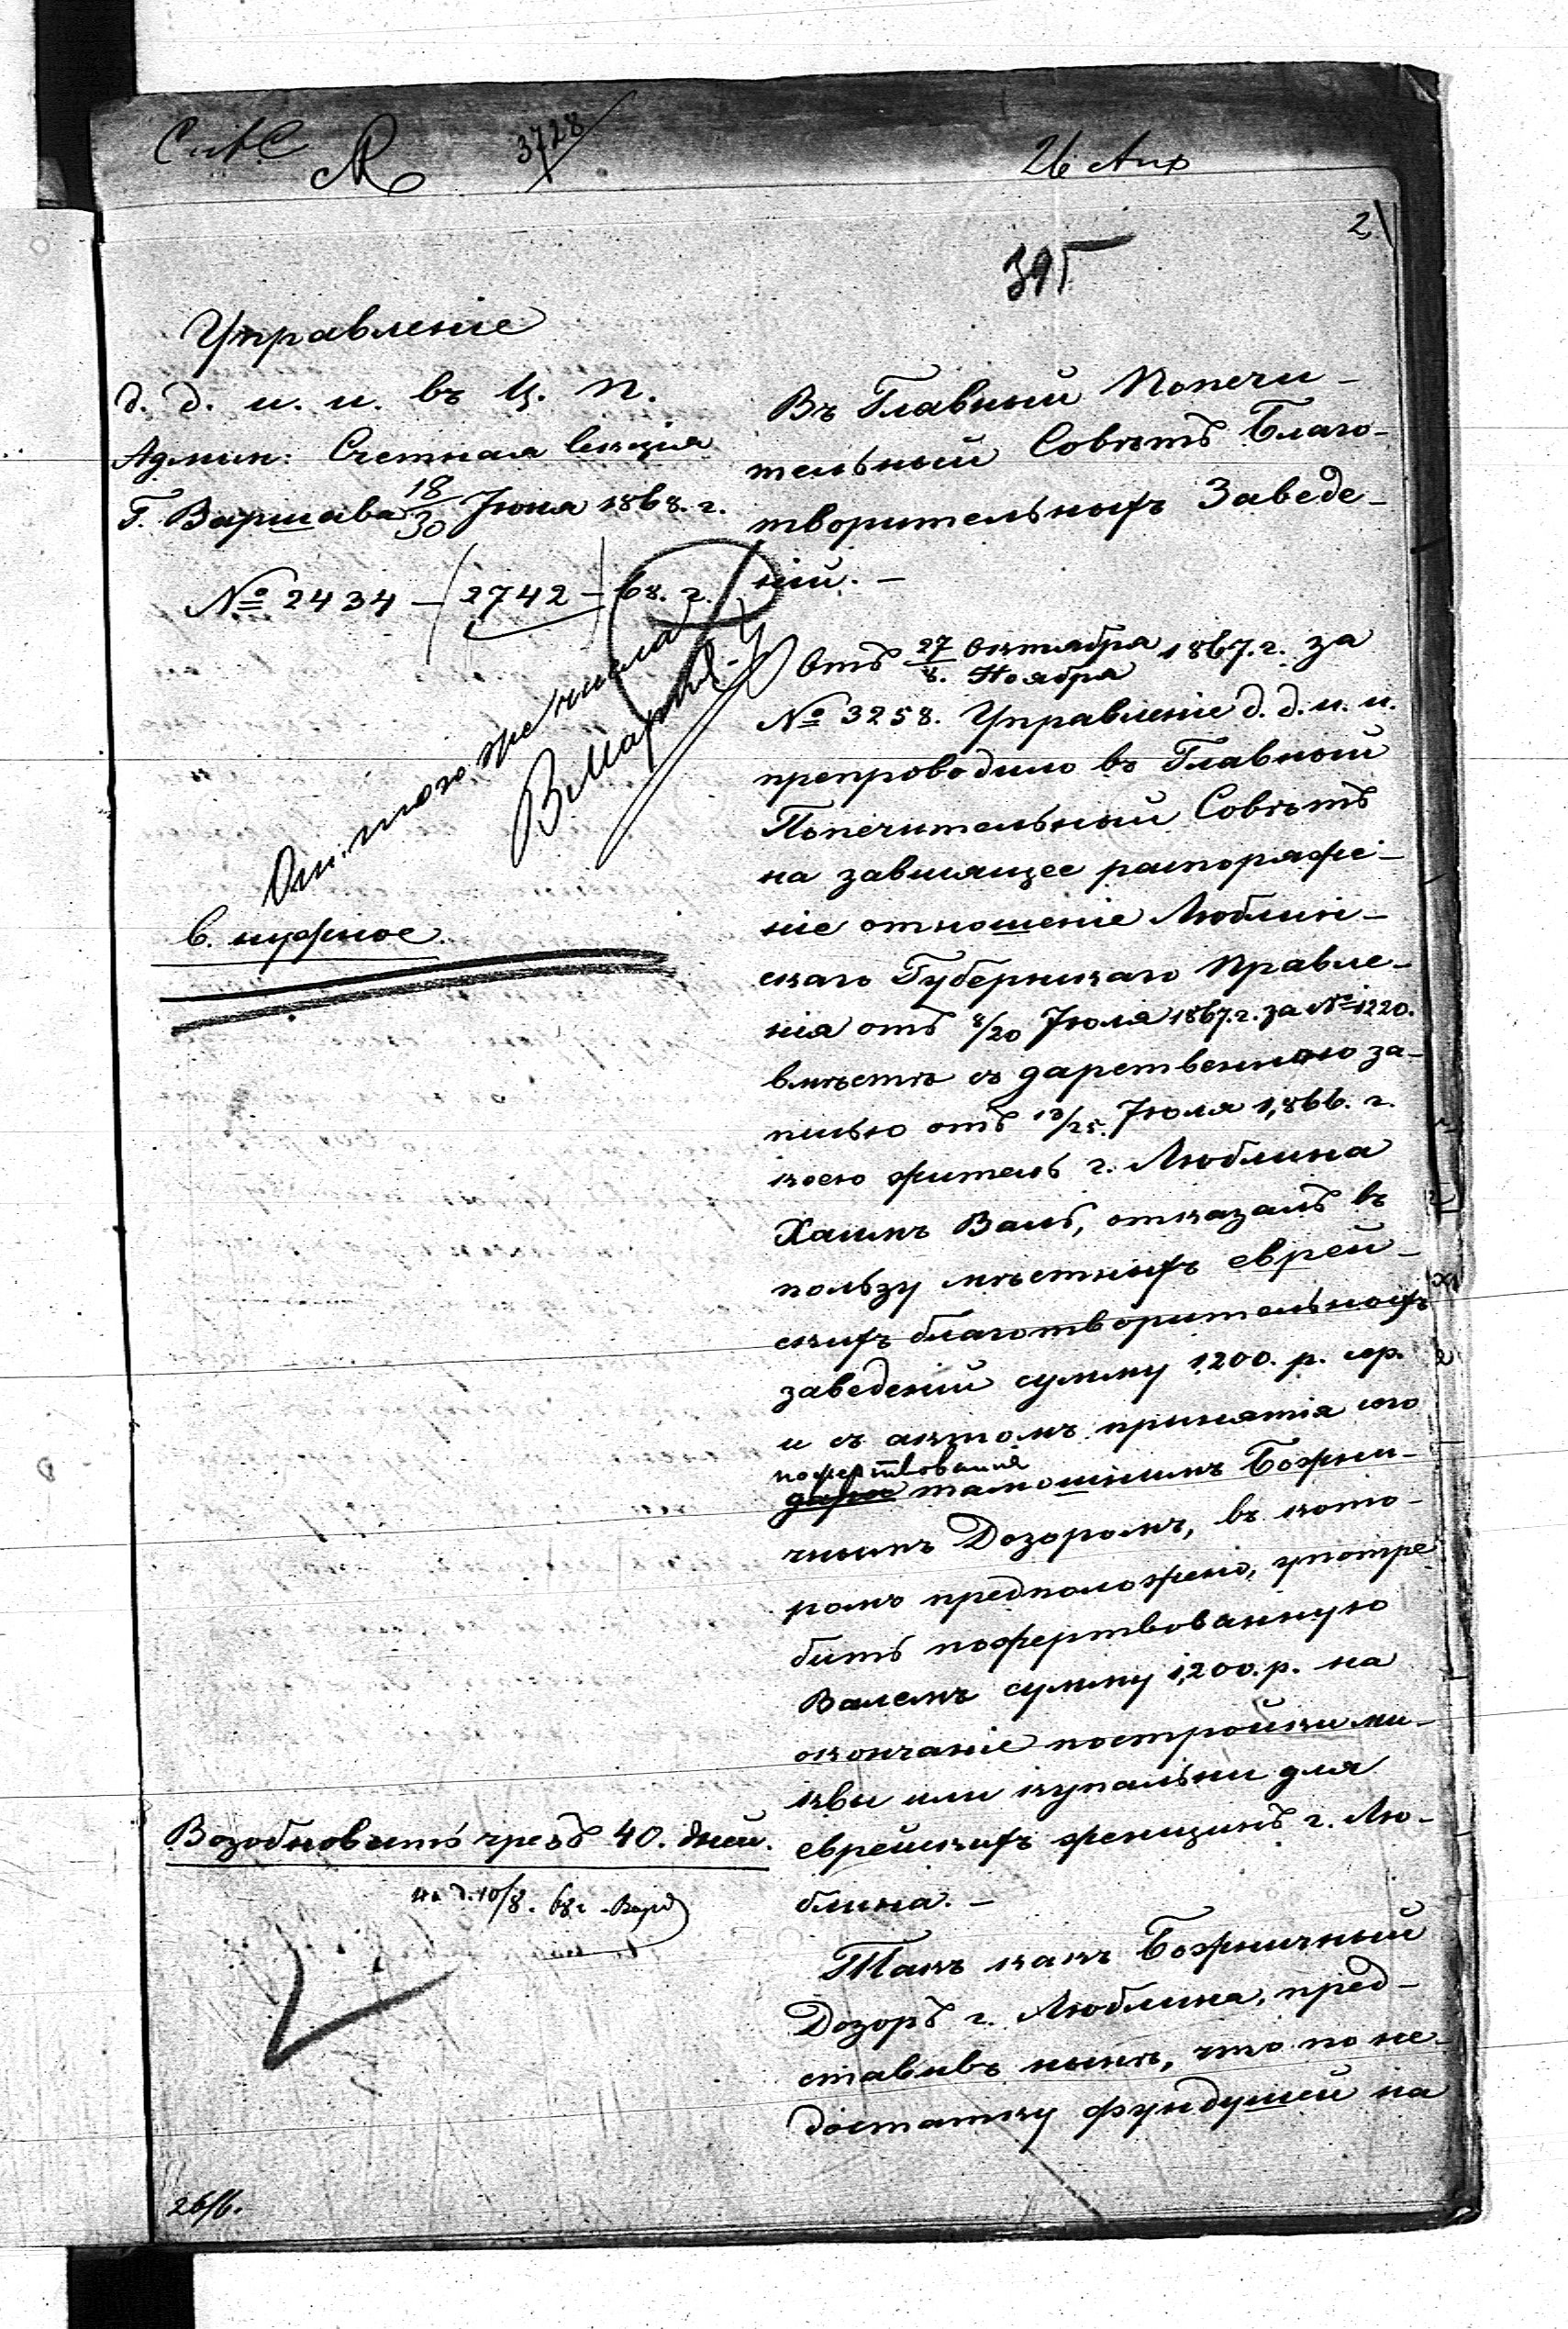 3728
26 Апр
2
395
Управленіе
д. д. и. и. въ Ц. П.
Админ: Счетная Секція
Г. Варшава 18/30 Іюня 1868. г.
№ 2434 – (2742 – 68. г.
От. того же числа
в. нужное.
Въ Главный Попечи-
тельный Совѣтъ Благо-
творительныхъ Заведе-
ній. –
Отъ 27 Октября / 8. Ноября 1867. г. за
№ 3258. Управленіе д. д. и. и.
препроводило въ Главный
Попечительный Совѣтъ
на зависящее распоряже-
ніе отношеніе Люблин-
скаго Губернскаго Правле-
нія отъ 8/20 Іюля 1867. г. за № 1220.
вмѣстѣ съ дарственною за-
писью отъ 13/25. Іюля 1,866. г.
коею житель г. Люблина
Хаимъ Валъ, отказалъ въ
пользу мѣстныхъ еврей-
скихъ благотворительныхъ
заведеній сумму 1200. р. сер.
и съ актомъ принятія сего
пожертвованія
дара тамошнимъ Божни-
чнымъ Дозоромъ, въ кото-
ромъ предположено, употре
бить пожертвованную
Валемъ сумму 1,200. р. на
окончаніе постройки ми-
квы или купальни для
еврейскихъ женщинъ г. Лю-
блина. –
Такъ какъ Божничный
Дозоръ г. Люблина, пред-
ставивъ нынѣ, что по не-
достатку фундушей на
Возобновить чрезъ 40. дней.
на д. 10/8. 68 г
26/6.